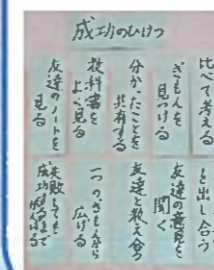 成功のひけつ
比べて考える
ぎもんを
見つける
分かったことを
共有する
教科書を
よく見る
友達のノートを
見る
出し合う
友達の意見を
聞く
友達と教え合う
一つのぎもんから
広げる
失敗しても
成功するまで
がんばる